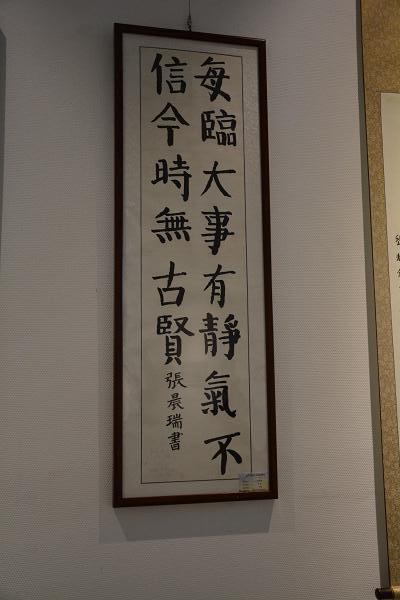 每臨大事有靜氣不
信今時無古賢
張晨瑞書